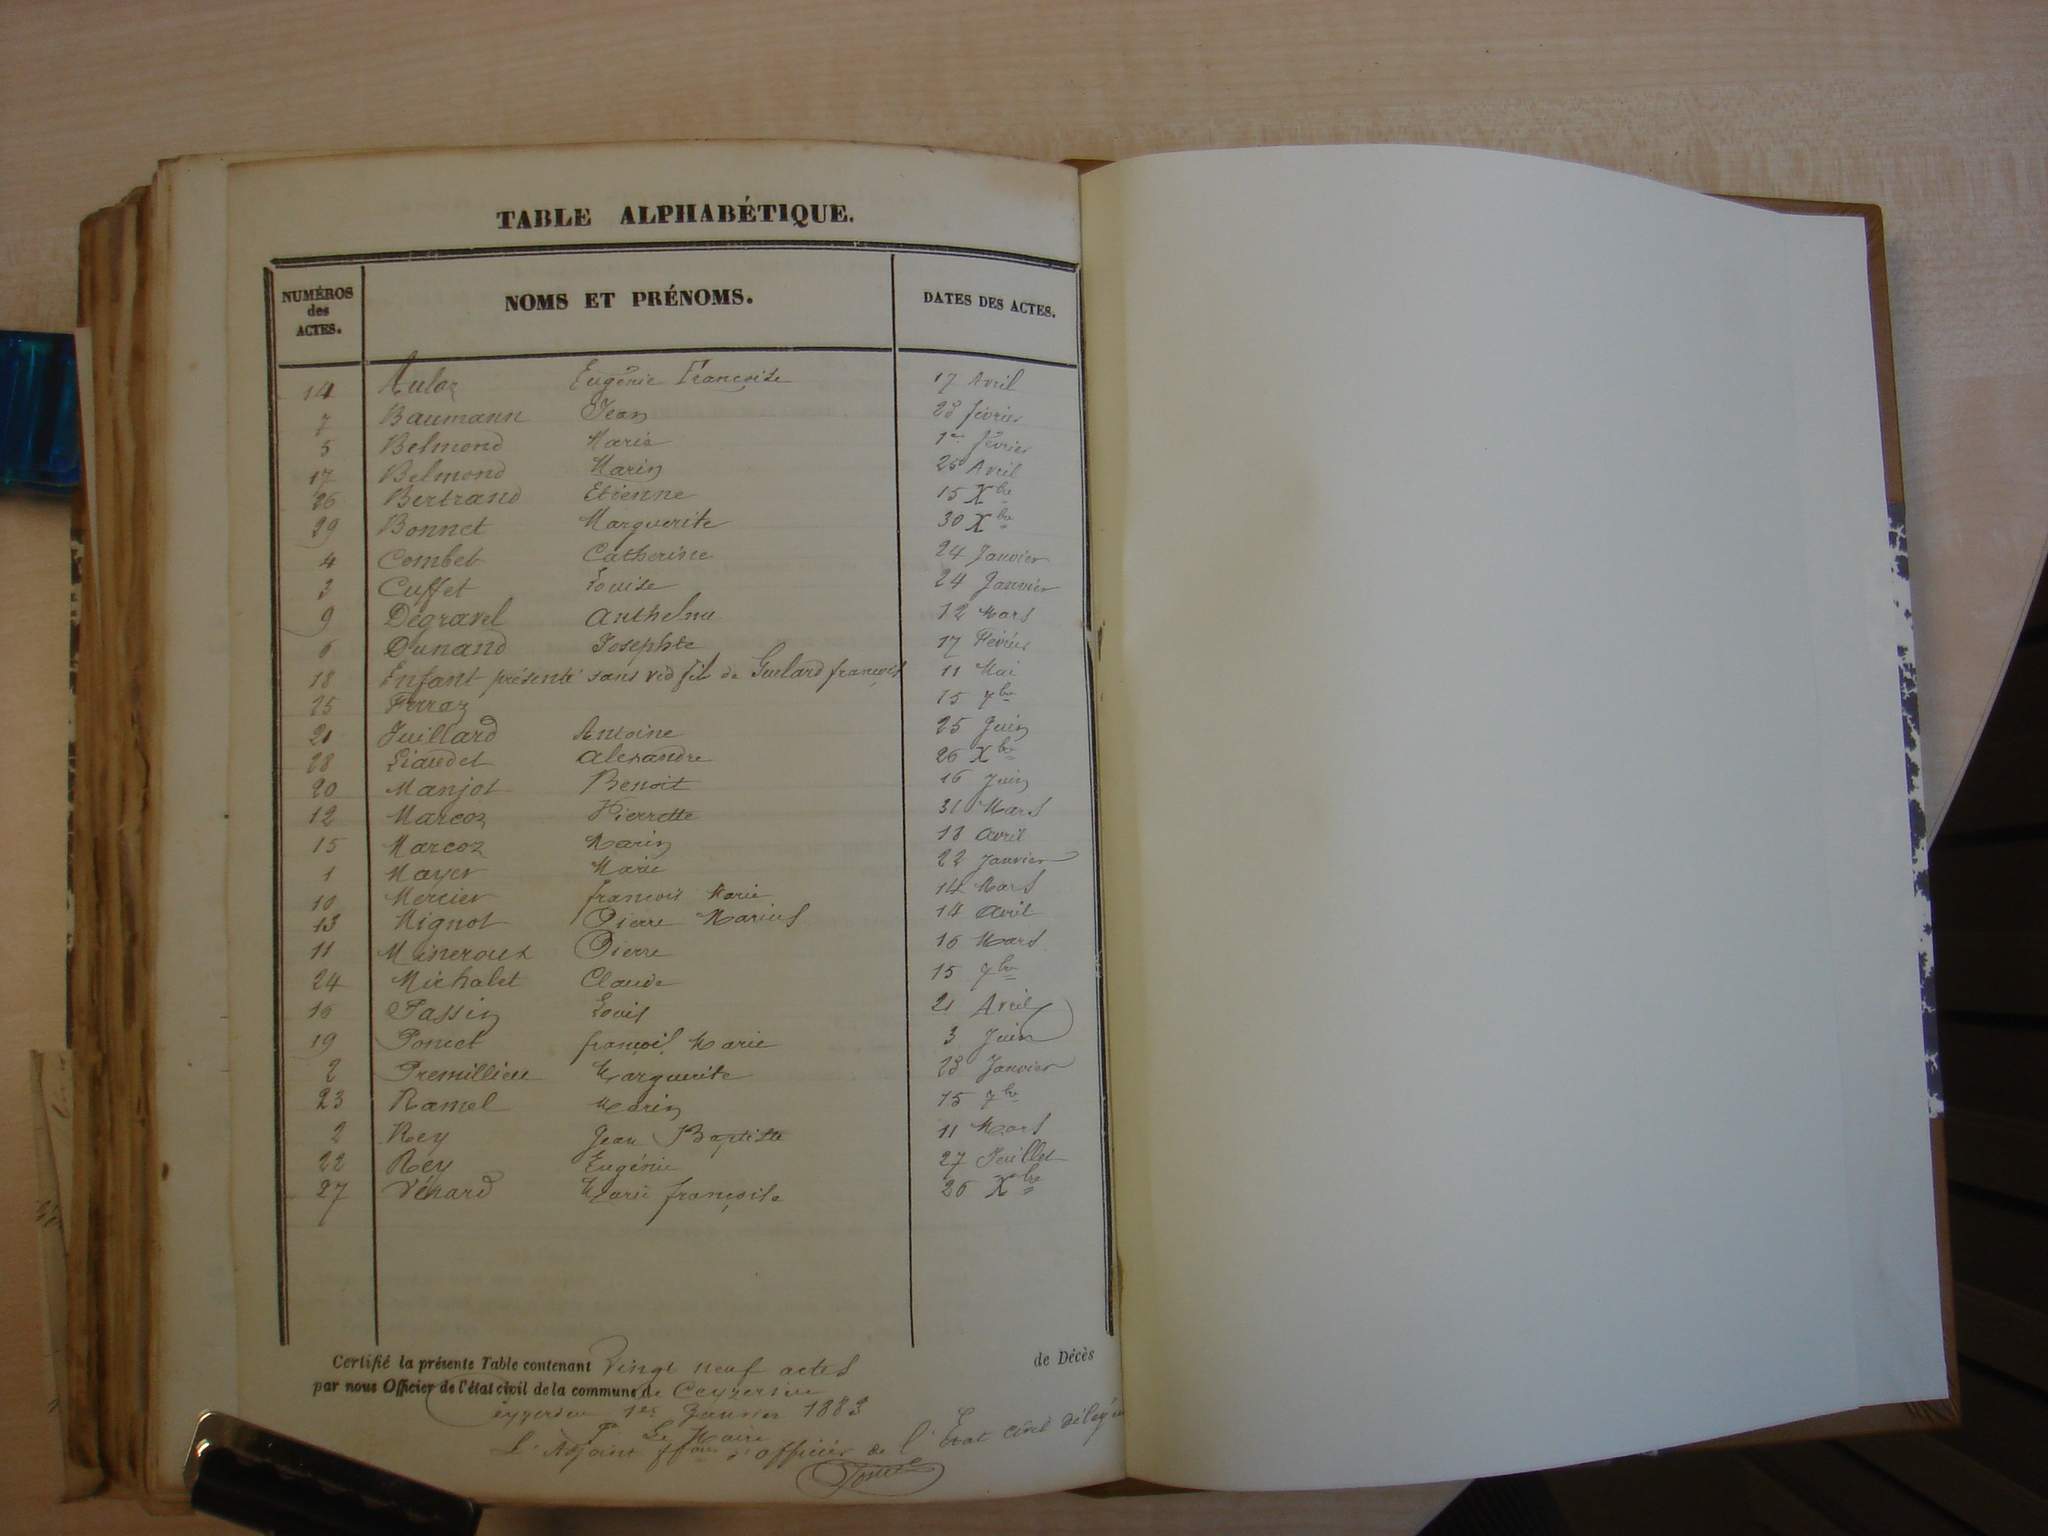 TABLE ALPHABÉTIQUE.
NUMÉROS des ACTES. NOMS ET PRÉNOMS. DATES DES ACTES.
14 Eugénie Françoise 17 Avril
7 Baumann Jean 23 février
5 Belmond Marie 1er février
17 Belmond Marin 25 Avril
26 Bertrand Etienne 15 Xbre
29 Bonnet Marguerite 30 Xbre
4 Combet Catherine 24 Janvier
3 Cuffet Louise 24 Janvier
9 Degravel Anthelme 12 Mars
6 Dunand Josephte 17 Février
18 Enfant présenté sans vie fils de françois 11 Mai
25 Ferraz 15 7bre
21 Juillard Antoine 25 Juin
28 Liaudet Alexandre 26 Xbre
20 Manjot Benoit 16 Juin
12 Marcoz Pierrette 31 Mars
15 Marcoz Marin 18 avril
1 Mayer Marie 22 Janvier
10 Mercier françois Marie 14 Mars
13 Mignot Pierre Marius 14 avril
11 Pierre 16 Mars
24 Michalet Claude 15 7bre
16 Passin Louis 21 Avril
19 Poncet françois Marie 3 Juin
2 Premillieu Marguerite 23 Janvier
23 Ramel Marin 15 7bre
2 Rey Jean Baptiste 11 Mars
22 Rey Eugénie 27 Juillet
27 Vénard Marie françoise 26 Xbre
Certifié la présente Table contenant Vingt neuf actes de Décès
par nous Officier de l'état civil de la commune de Ceyzerieu
Ceyzerieu 1er Janvier 1883
P. Le Maire
L'Adjoint ffons d'officier de l'Etat civil délégué